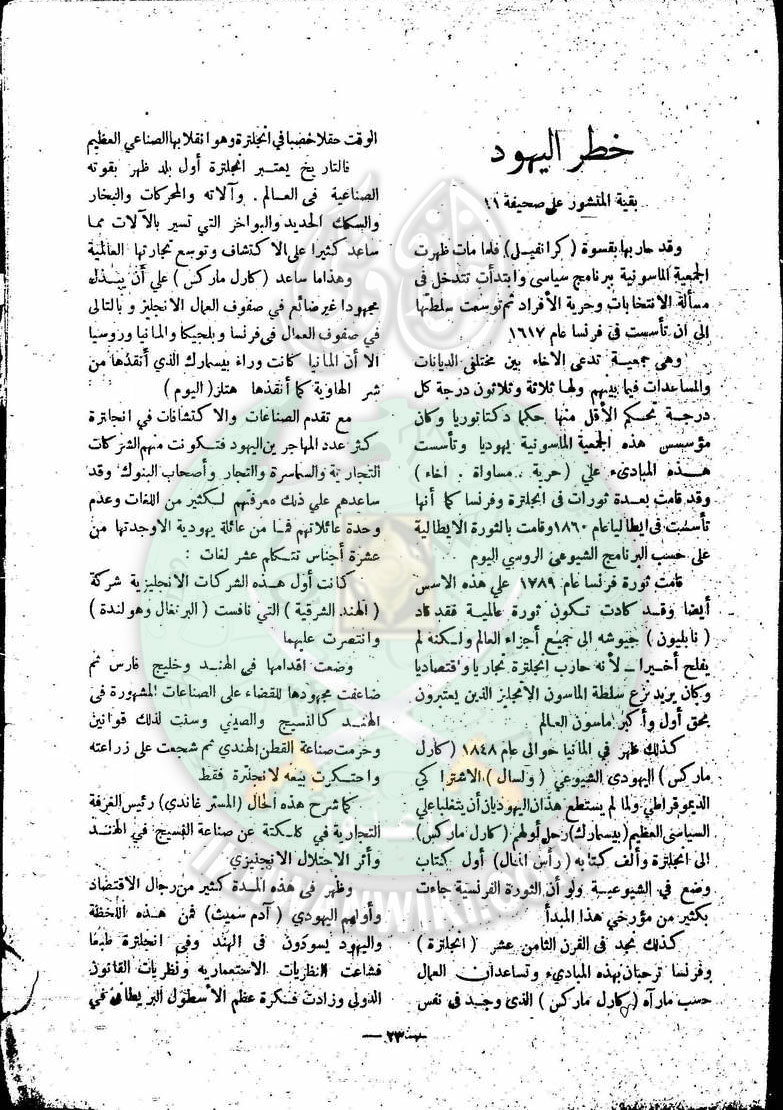 خطر اليهود
بقية المنشور على صحيفة ١١
وقد حاربها بقسوة (كرانفيل) فلما مات ظهرت
الجمعية الماسونية ببرنامج سياسى وابتدأت تتدخل فى
مسألة الانتخابات وحرية الأفراد ثم توسعت سلطتها
الى ان تأسست فى فرنسا عام ١٦١٧
وهى جمعية تدعى الاخاء بين مختلفى الديانات
والمساعدات فيما بينهم ولها ثلاثة وثلاثون درجة كل
درجة تحكم الأقل منها حكما دكتاتوريا وكان
مؤسس هذه الجمعية الماسونية يهوديا وتأسست
هذه المبادىء علي (حرية . مساواة . اخاء)
وقد قامت بعدة ثورات فى انجلترة وفرنسا كما أنها
تأسست فى ايطاليا عام ١٨٦٠ وقامت بالثورة الايطالية
على حسب البرنامج الشيوعى الروسي اليوم
قامت ثورة فرنسا عام ١٧٨٩ علي هذه الاسس
أيضا وقد كادت تكون ثورة عالمية فقد قاد
(نابليون) جيوشه الى جميع أجزاء العالم ولكنه لم
يفلح أخيرا ــ لأنه حارب انجلترة تجاريا واقتصاديا
وكان يريد نزع سلطة الماسون الانجليز الذين يعتبرون
بحق أول وأكبر ماسون العالم
كذلك ظهر فى المانيا حوالى عام ١٨٤٨ (كارل
ماركس) اليهودى الشيوعي (ولسال) الاشتراكي
الديموقراطي ولما لم يستطع هذان اليهوديان أن يتغلبا علي
السياسى العظيم (بيسمارك) رحل أولهم (كارل ماركس)
الى انجلترة وألف كتابه (رأس المال) أول كتاب
وضع في الشيوعية ولو أن الثورة الفرنسية جاءت
بكثير من مؤرخي هذا المبدأ
كذلك نجد فى القرن الثامن عشر (انجلترة)
وفرنسا ترحبان بهذه المبادىء وتساعدان العمال
حسب مارآه (كارل ماركس) الذى وجد فى نفس
الوقت حقلا خصبا في انجلترة وهو انقلابها الصناعي العظيم
فالتاريخ يعتبر انجلترة أول بلد ظهر بقوته
الصناعية فى العالم . وآلاته والمحركات والبخار
والسكك الحديد والبواخر التي تسير بالآلات مما
ساعد كثيرا على الاكتشاف وتوسع تجارتها العالمية
وهذا ما ساعد (كارل ماركس) علي أن يبذل
مجهودا غير ضائع في صفوف العمال الانجليز وبالتالى
في صفوف العمال فى فرنسا وبلجيكا والمانيا وروسيا
الا أن المانيا كانت وراء بيسمارك الذي أنقذها من
شر الهاوية كما أنقذها هتلر (اليوم)
مع تقدم الصناعات والاكتشافات في انجلترة
كثر عدد المهاجرين اليهود فتكونت منهم الشركات
التجارية والسماسرة والتجار وأصحاب البنوك وقد
ساعدهم علي ذلك معرفتهم لكثير من اللغات وعدم
وحدة عائلاتهم فما من عائلة يهودية الا وجدتها من
عشرة أجناس تتكلم عشر لغات :
كانت أول هذه الشركات الانجليزية شركة
(الهند الشرقية) التي نافست (البرتغال وهولندة)
وانتصرت عليهما
وضعت اقدامها فى الهند وخليج فارس ثم
ضاعفت مجهودها للقضاء على الصناعات المشهورة فى
الهند كالنسيج والصيني وسنت لذلك قوانين
وحرمت صناعة القطن الهندي ثم شجعت على زراعته
واحتكرت بيعه لانجلترة فقط
كما شرح هذه الحال (المستر غاندي) رئيس الغرفة
التجارية في كلكتة عن صناعة النسيج في الهند
وأثر الاحتلال الانجليزي
وظهر فى هذه المدة كثير من رجال الاقتصاد
وأولهم اليهودي (آدم سميث) فمن هذه اللحظة
واليهود يسودون فى الهند وفى انجلترة طبعا
فشاعت النظريات الاستعماريه ونظريات القانون
الدولى وزادت فكرة عظم الأسطول البريطانى في
— ٢٣ —
IKHWANWIKI.COM